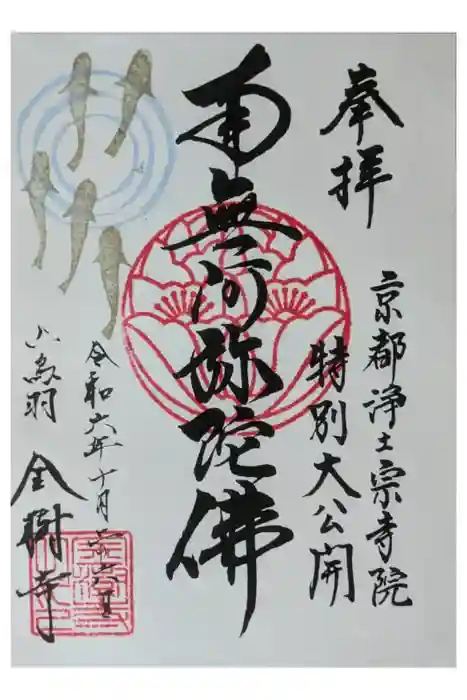 奉拝
京都浄土宗寺院
特別大公開
南無阿弥陀佛
令和六年十月六日
鳥羽
樹寺